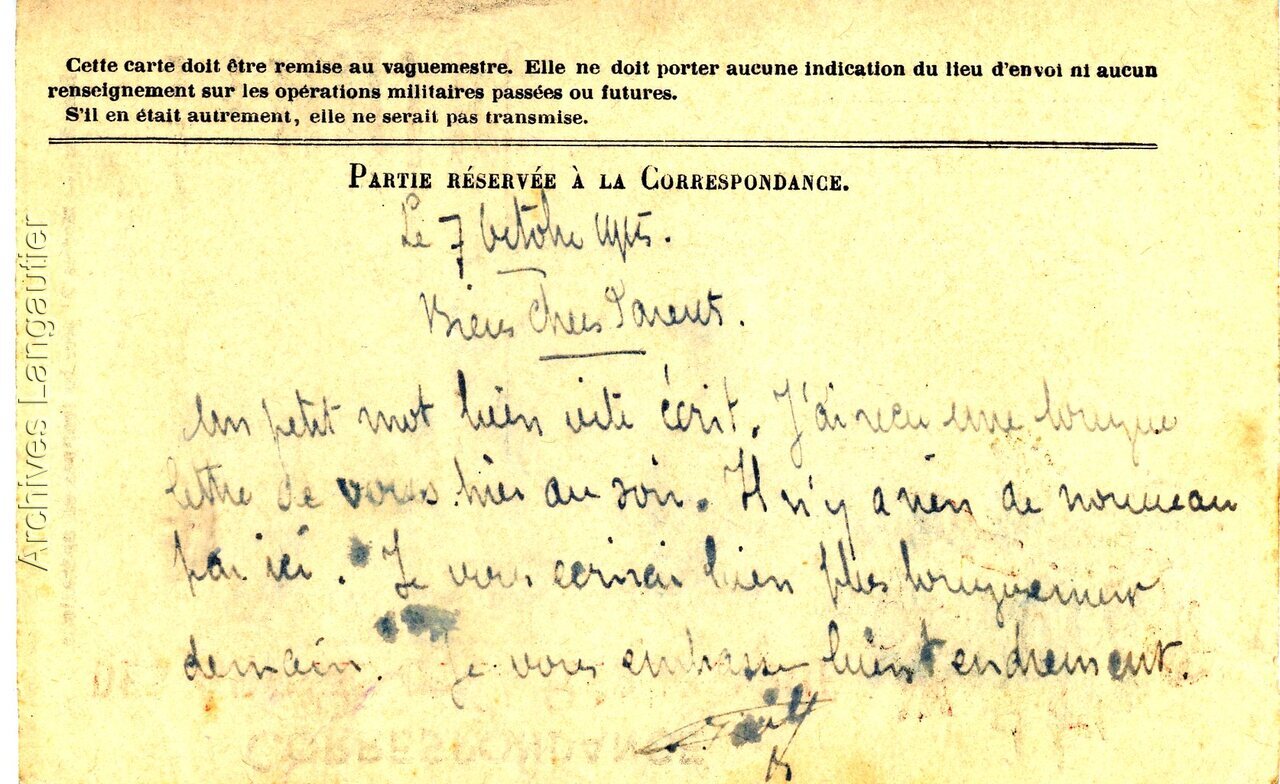 Cette carte doit être remise au vaguemestre. Elle ne doit porter aucune indication du lieu d'envoi ni aucun
renseignement sur les opérations militaires passées ou futures.
S'il en était autrement, elle ne serait pas transmise.
PARTIE RÉSERVÉE À LA CORRESPONDANCE.
Le 7 Octobre 1915.
Biens Chers Parents.
Un petit mot bien vite écrit. J'ai recu une longue
lettre de vous hier au soir. Il n'y a rien de nouveau
par ici. Je vous ecrirai bien plus longuement
demain. Je vous embrasse bien tendrement.
Archives Langautier
CORRESPONDANCE